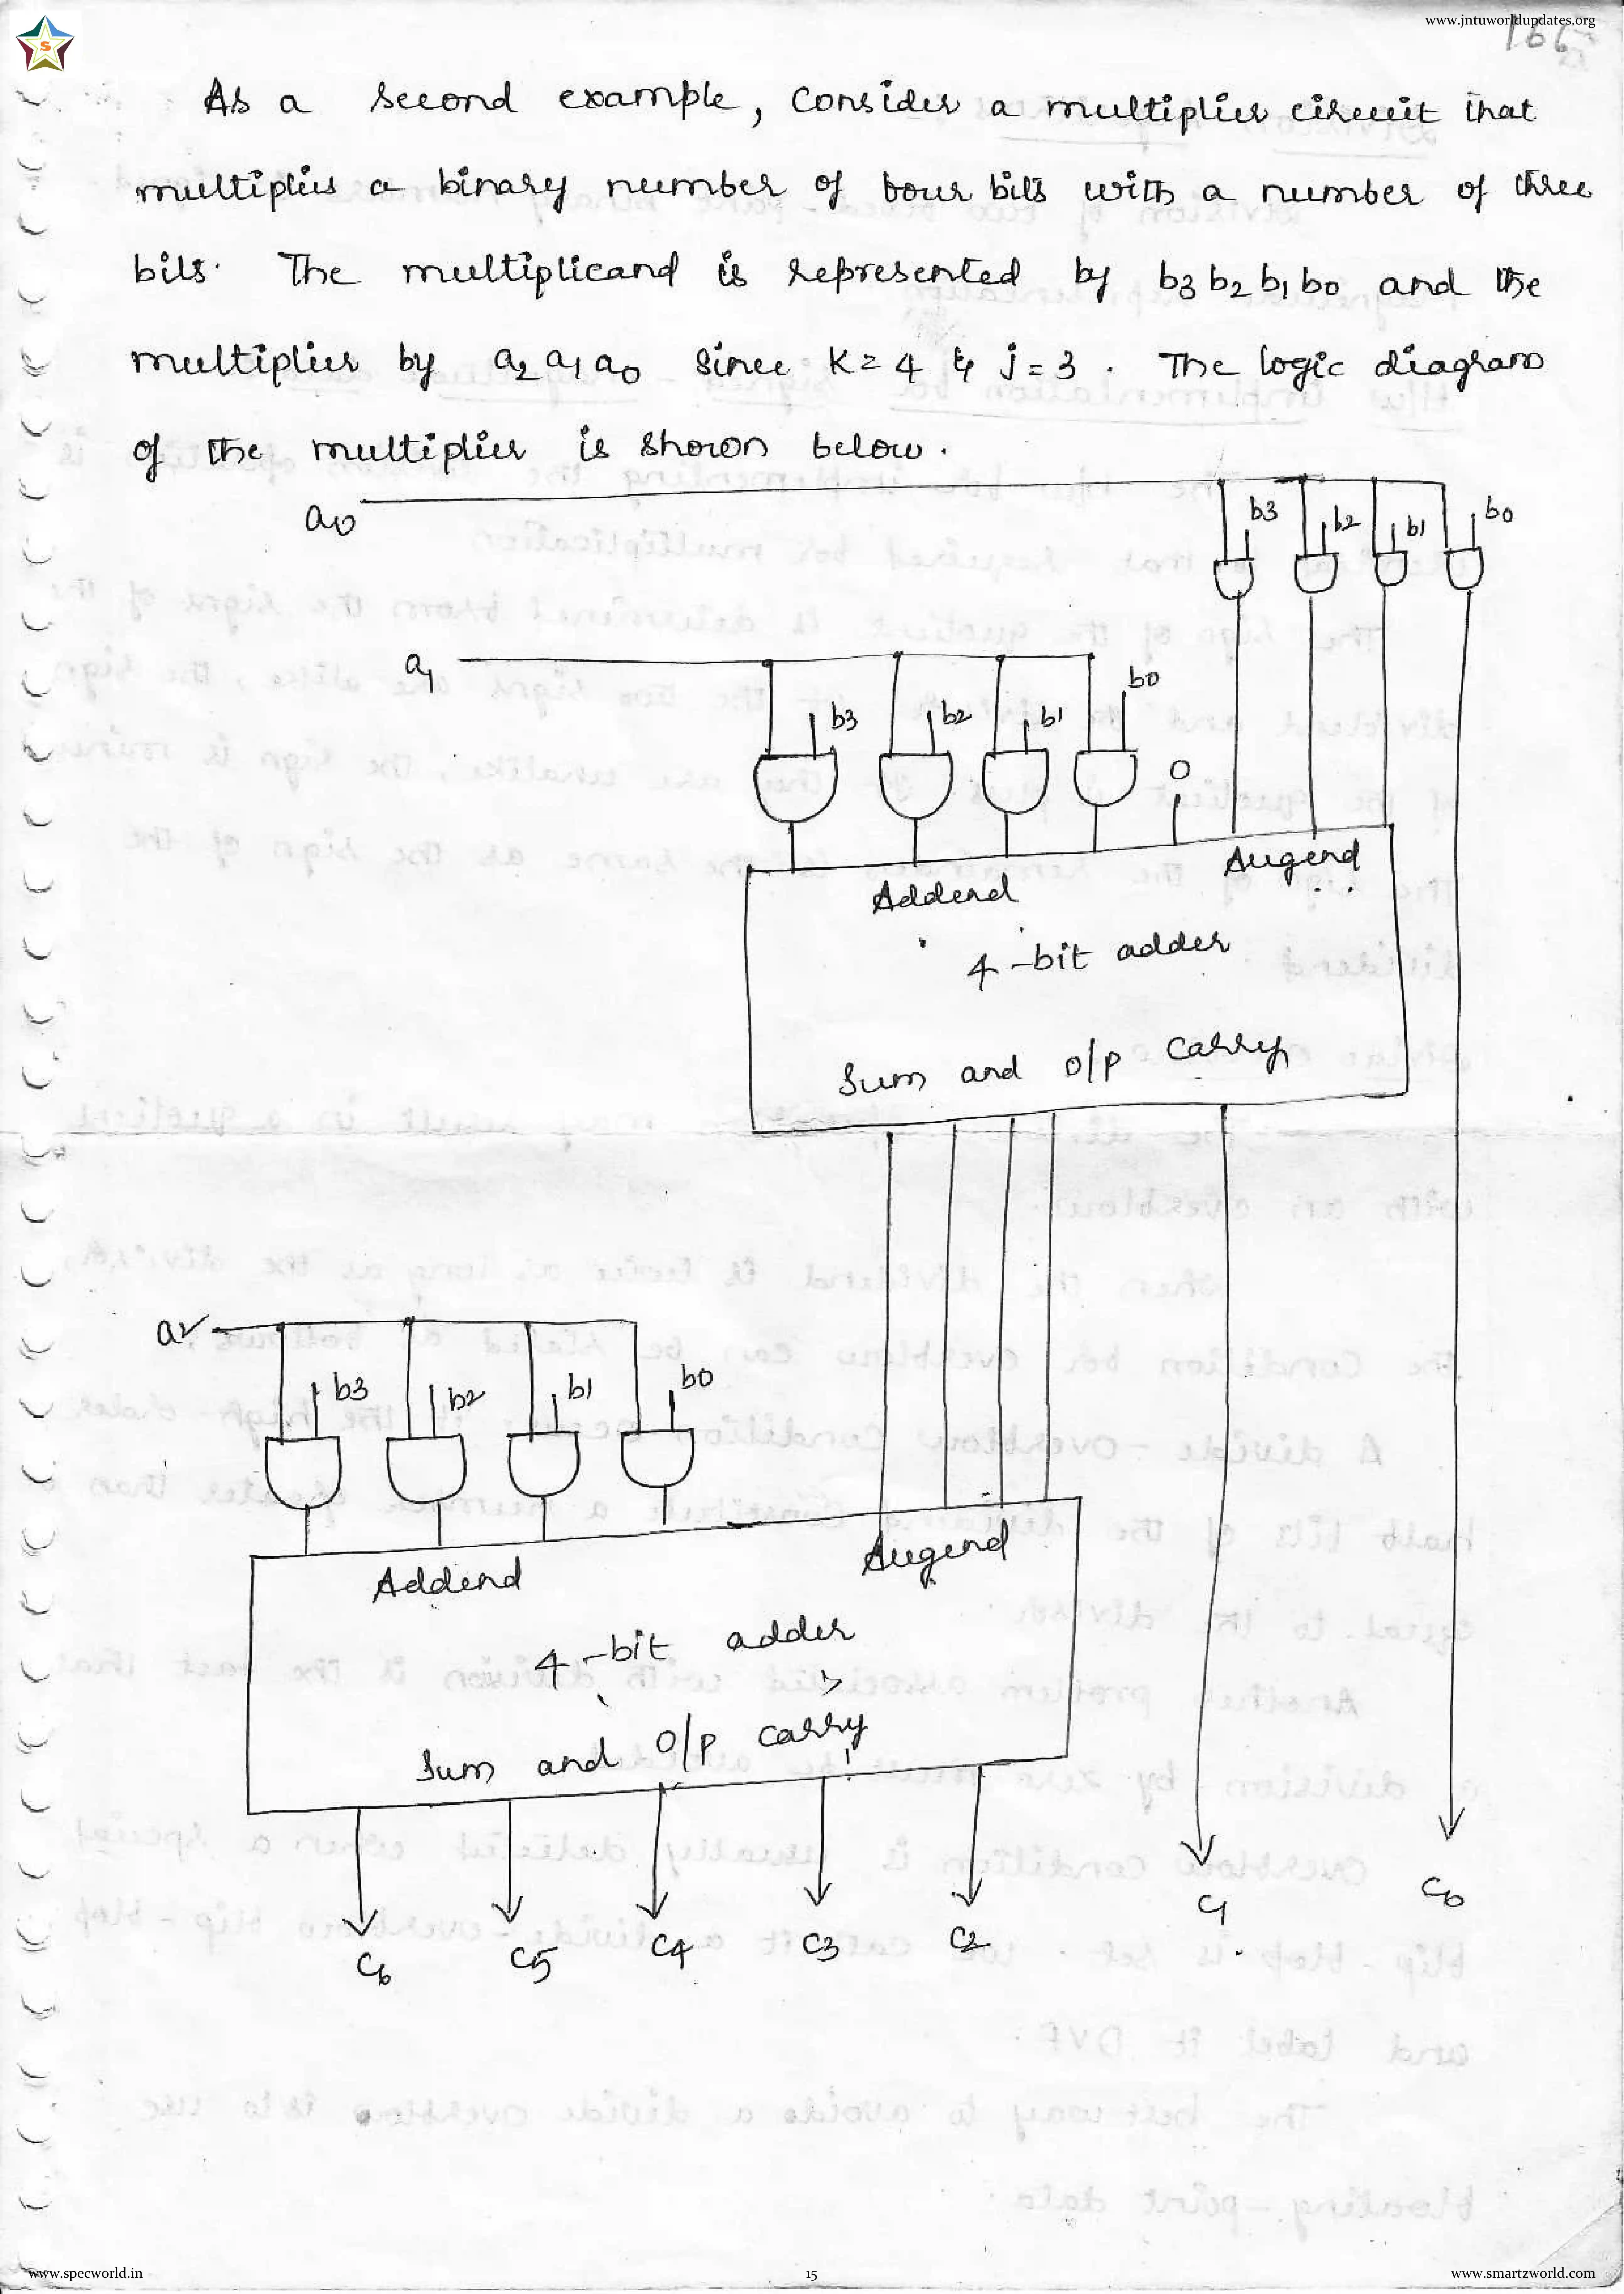 www.jntuworldupdates.org
S
166
As a second example, consider a multiplier circuit that
multiplies a binary number of four bits with a number of three
bits. The multiplicand is represented by b3 b2 b1 b0 and the
multiplier by a2 a1 a0 since K=4 & j=3. The logic diagram
of the multiplier is shown below.
a0
b3 b2 b1 b0
a1
b3 b2 b1 b0
0
Addend Augend
4-bit adder
Sum and o/p carry
a2
b3 b2 b1 b0
Addend Augend
4-bit adder
Sum and o/p carry
c6 c5 c4 c3 c2 c1 c0
www.specworld.in
15
www.smartzworld.com